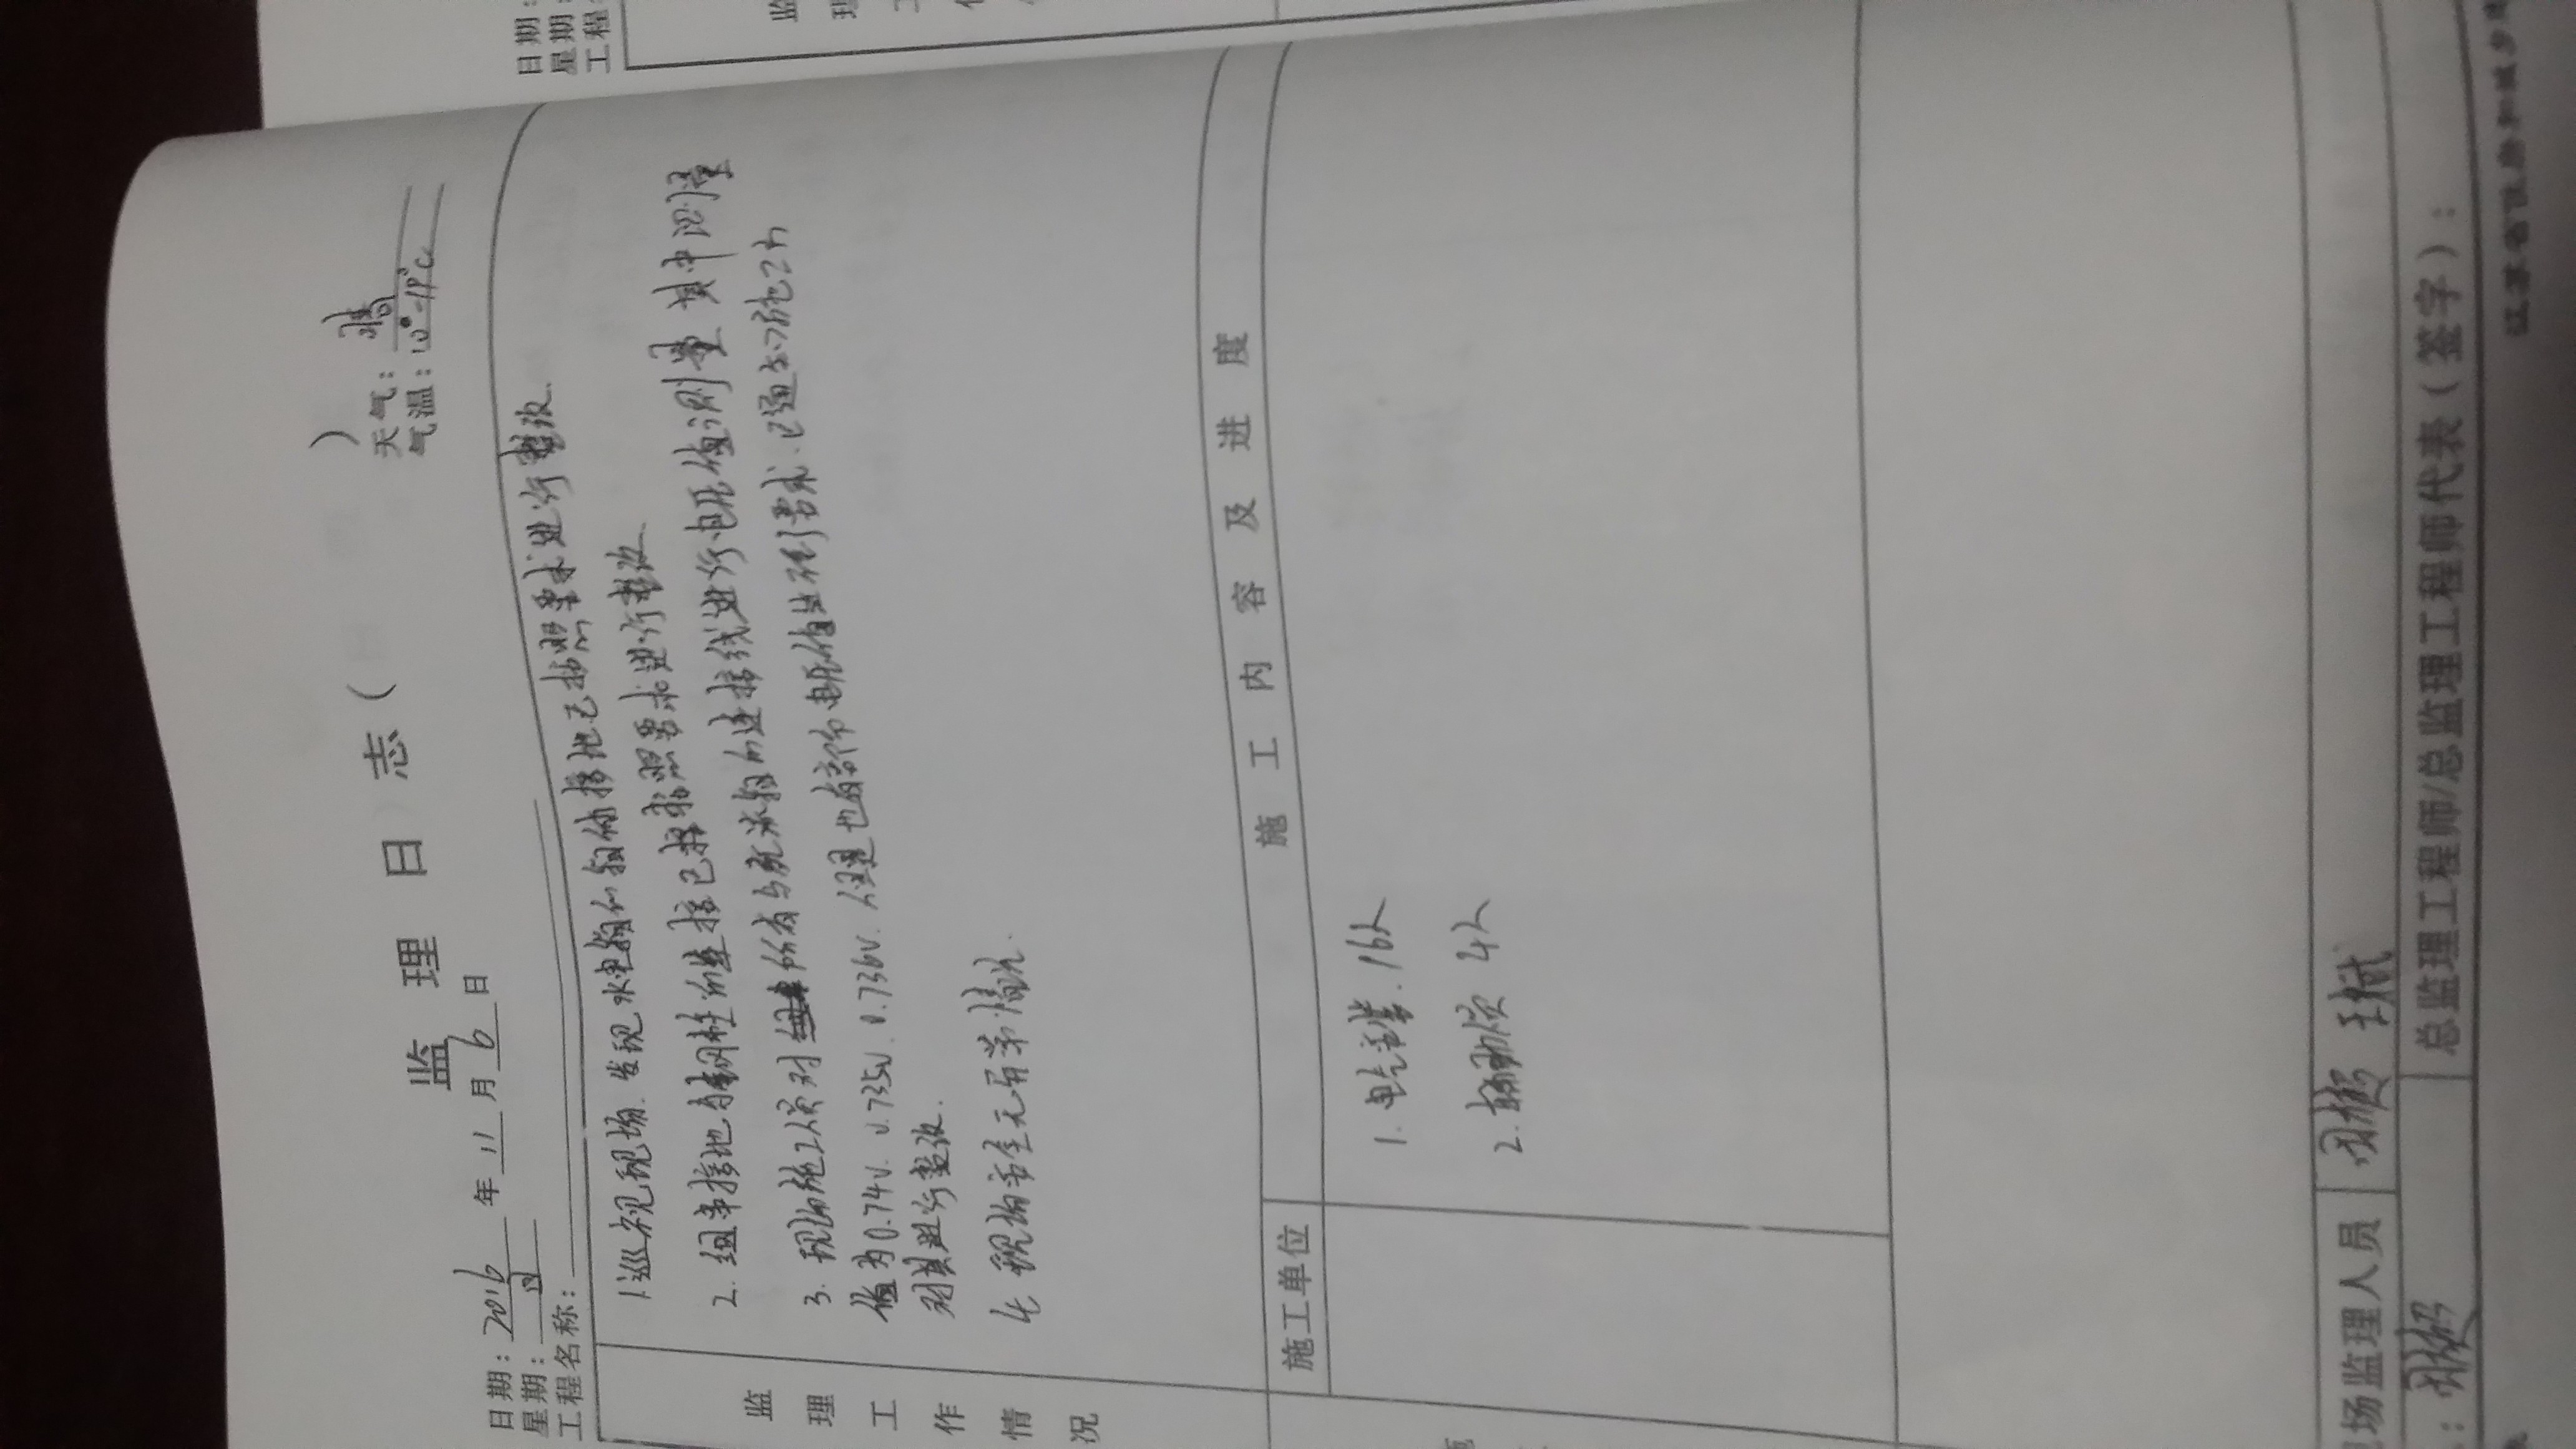 监 理 日 志 （ ）
日期：2016 年 11 月 6 日 天气：晴
星期：日 气温：10°-19°C
工程名称：
监理工作情况
1.巡视现场.发现水电箱的接地已按照要求进行整改.
2.组串接地与钢柱的连接已按照要求进行整改
3.现场施工人员对所有与汇流箱的连接线进行电压值测量 其中测量
值为0.74V.0.735V.0.736V.但是也有部分电压值达不到要求.已通知施工方
对其进行整改.
4 现场安全无异常情况.
施工单位 施 工 内 容 及 进 度
1.电气安装.16人
2.辅助员 4人
场监理人员
总监理工程师/总监理工程师代表（签字）：
日期：
星期：
工程